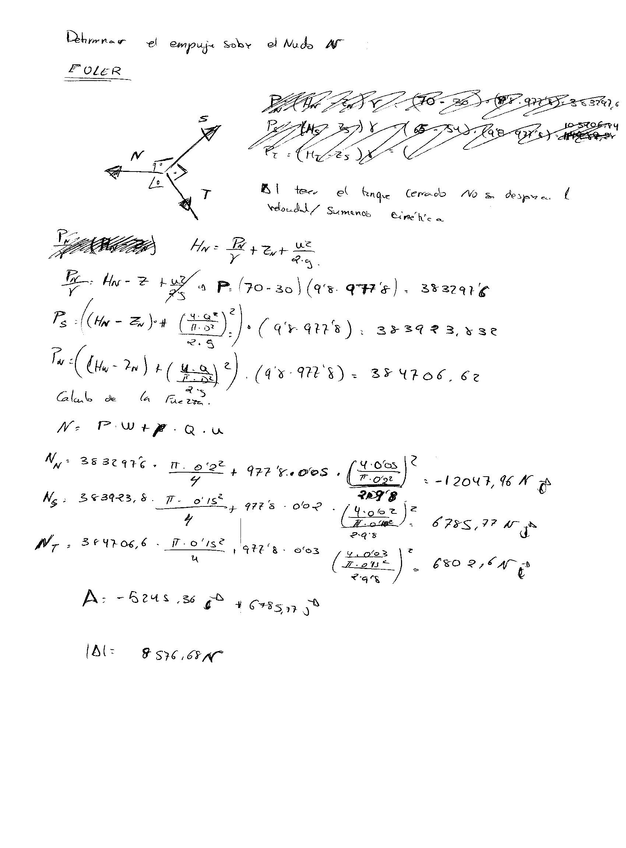 Determinar el empuje sobre el Nudo N
EULER
S
N
T
Al tener el tanque cerrado No se desprecia l
velocidad/ Sumenos cinética
H_N = P_N/γ + Z_N + u²/2·g
P_N/γ = H_N - Z + u²/2g P = (70-30)(9'8·977'8) = 383297'6
P_S = ((H_N - Z_N) + (4·Q/π·D²)²/2·g) · (9'8·977'8) = 383923,832
P_N = ((H_N - Z_N) + (4·Q/π·D²)²/2·g) · (9'8·977'8) = 384706,62
Calculo de la Fuerza.
N = P·W + ρ·Q·u
N_N = 383297'6 · π·0'2²/4 + 977'8·0'05 · (4·0'05/π·0'2²)²/2·9'8 = -12047,96 N j
N_S = 383923,8 · π·0'15²/4 + 977'8·0'02 · (4·0'02/π·0'15²)²/2·9'8 = 6785,77 N j
N_T = 384706,6 · π·0'15²/4 + 977'8·0'03 (4·0'03/π·0'15²)²/2·9'8 = 6802,6 N j
A = -5245,36 + 6785,77 j
|A| = 8576,68 N